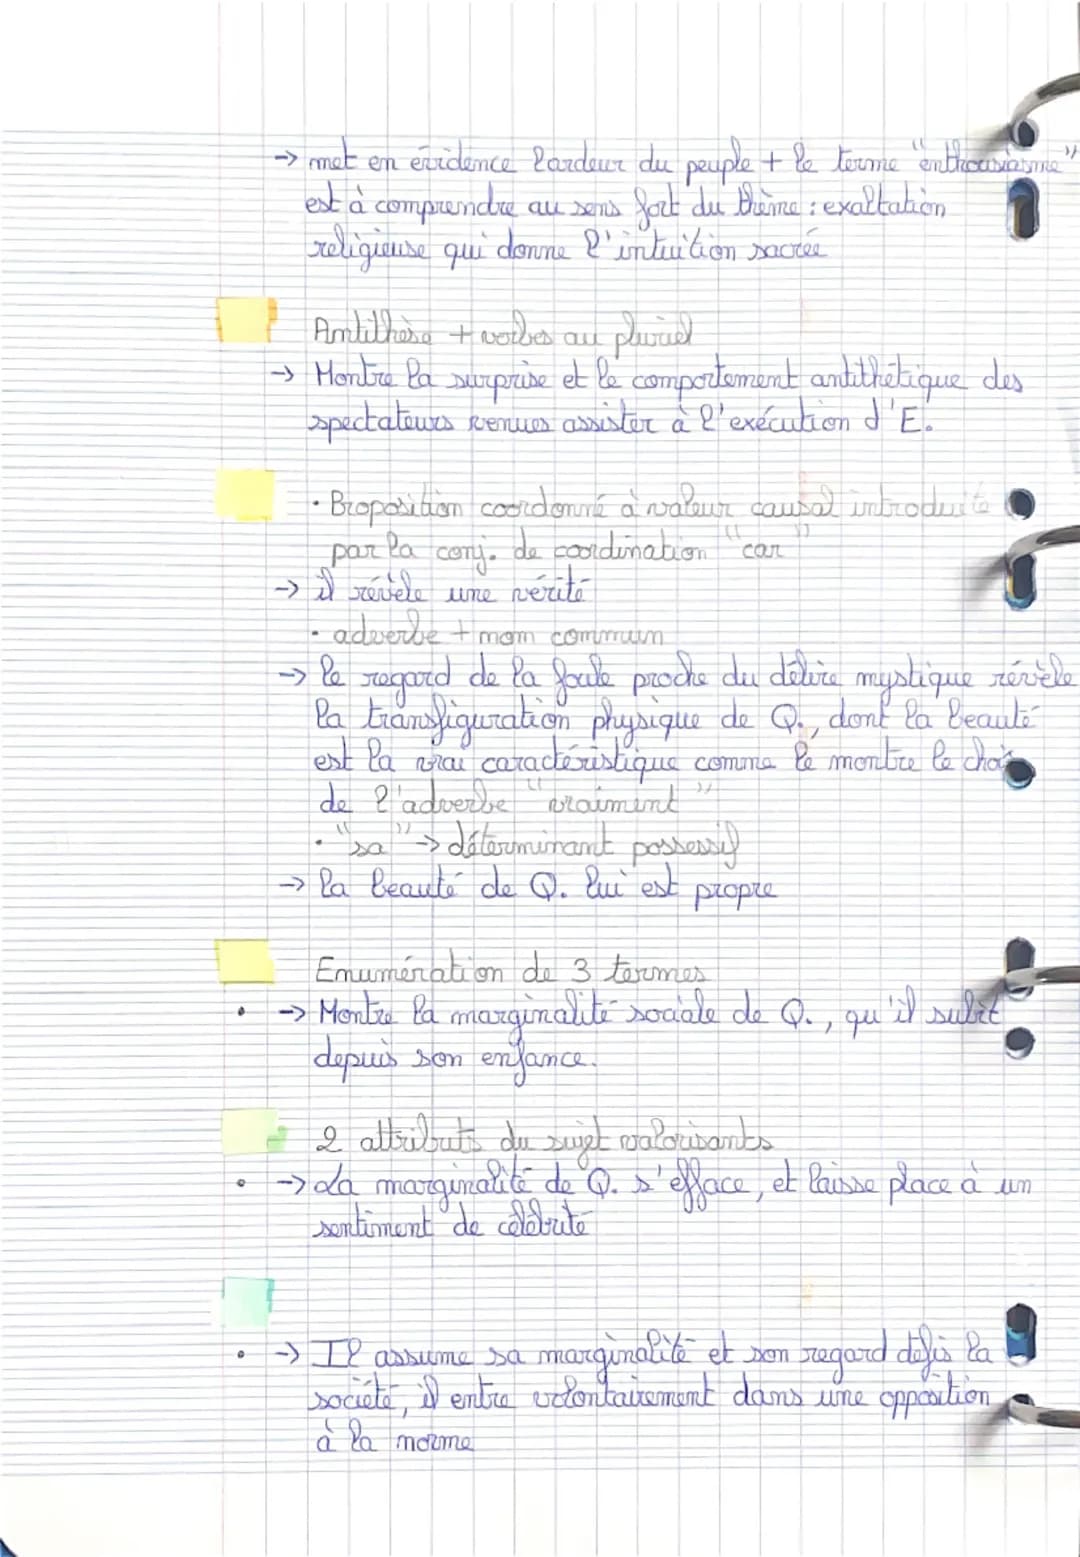 -> met en évidence l'ardeur du peuple + le terme "enthousiasme"
est à comprendre au sens fort du thème : exaltation
religieuse qui donne l'intuition sacrée
Antithèse + verbes au pluriel
-> Montre la surprise et le comportement antithétique des
spectateurs venues assister à l'exécution d'E.
• Proposition coordonné à valeur causal introduite
par la conj. de coordination "car"
-> il révèle une vérité
• adverbe + nom commun
-> le regard de la foule proche du délire mystique révèle
la transfiguration physique de Q., dont la beauté
est la vrai caractéristique comme le montre le choix
de l'adverbe "vraiment"
• "sa" -> déterminant possessif
-> la beauté de Q. lui est propre
Enumération de 3 termes
• -> Montre la marginalité sociale de Q., qu'il subit
depuis son enfance.
2 attributs du sujet valorisants
• -> La marginalité de Q. s'efface, et laisse place à un
sentiment de célébrité
• -> Il assume sa marginalité et son regard défis la
société, il entre volontairement dans une opposition
à la norme